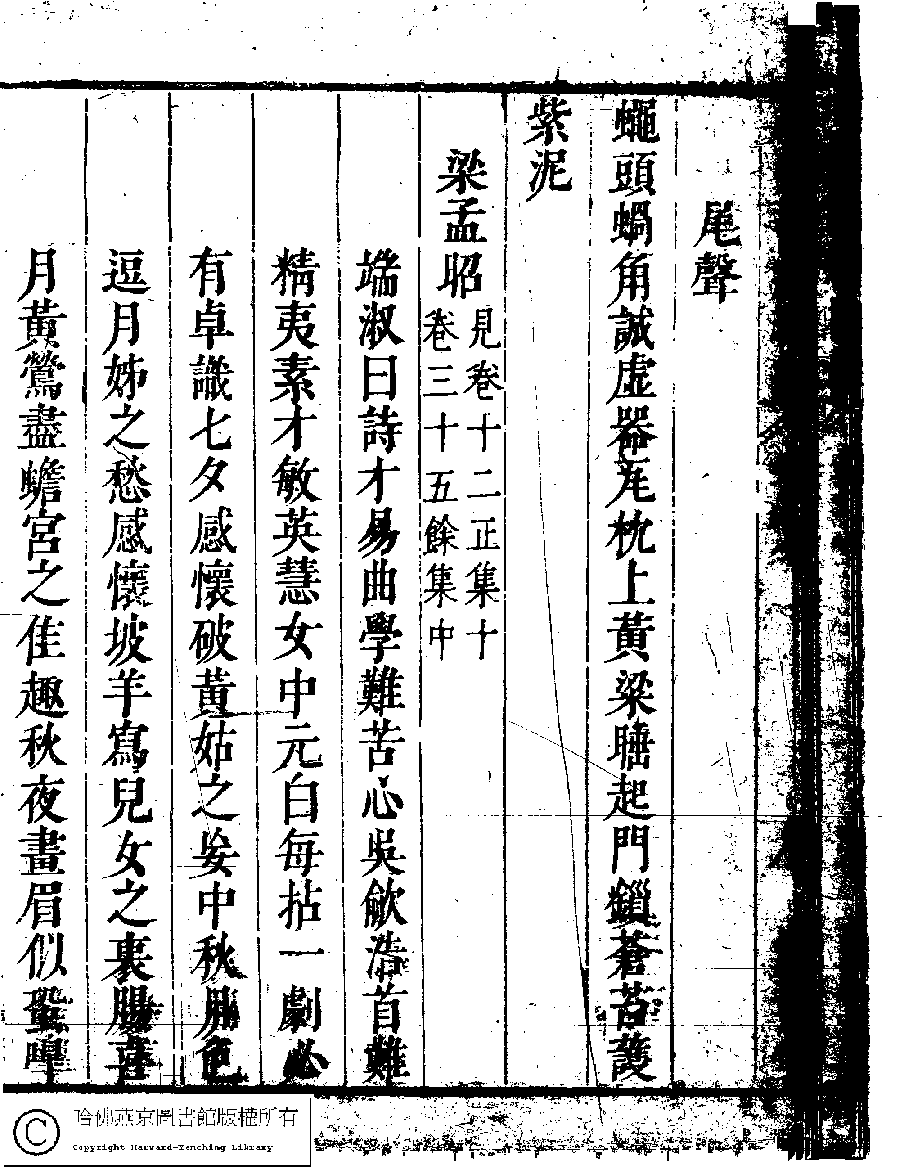 尾聲
蠅頭蝸角誠虛器瓦枕上黃粱睡起門鎖蒼苔護
紫泥
梁孟昭
見卷十二正集十
卷三十五餘集中
端淑曰詩才易曲學難苦心吳歈浩首難
精夷素才敏英慧女中元白每拈一劇必
有卓識七夕感懷破黃姑之妄中秋月色
逗月姊之愁感懷坡羊寫兒女之裏腸喜
月黃鶯盡蟾宮之佳趣秋夜畫眉似蛩
哈佛燕京圖書館版權所有
Copyright Harvard-Yenching Library